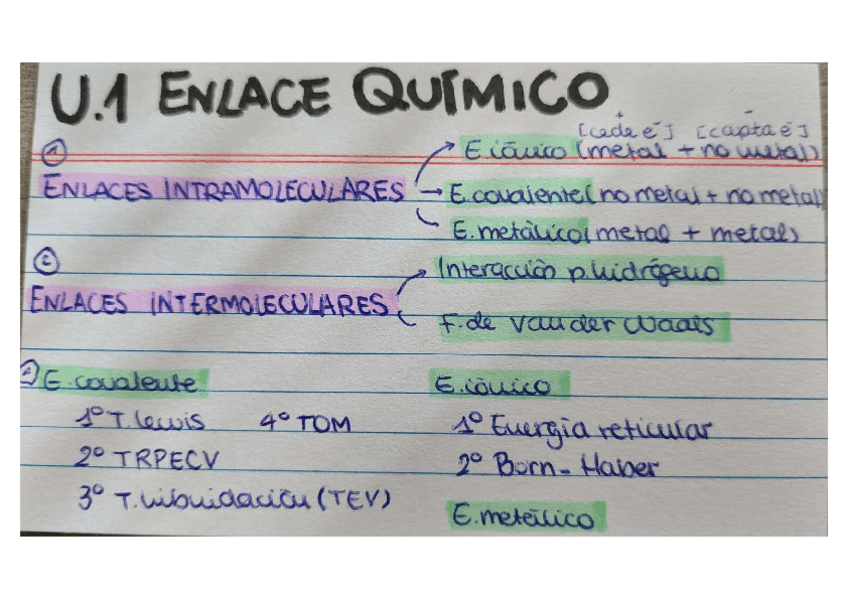 U.1 ENLACE QUÍMICO
+ -
[cede é] [capta é]
①
E. iónico (metal + no metal)
ENLACES INTRAMOLECULARES
E. covalente (no metal + no metal)
E. metálico (metal + metal)
②
Interacción p. hidrógeno
ENLACES INTERMOLECULARES
F. de Van der Waals
E. covalente
E. iónico
1º T. Lewis 4º TOM
1º Energía reticular
2º TRPECV
2º Born-Haber
3º T. hibridación (TEV)
E. metálico